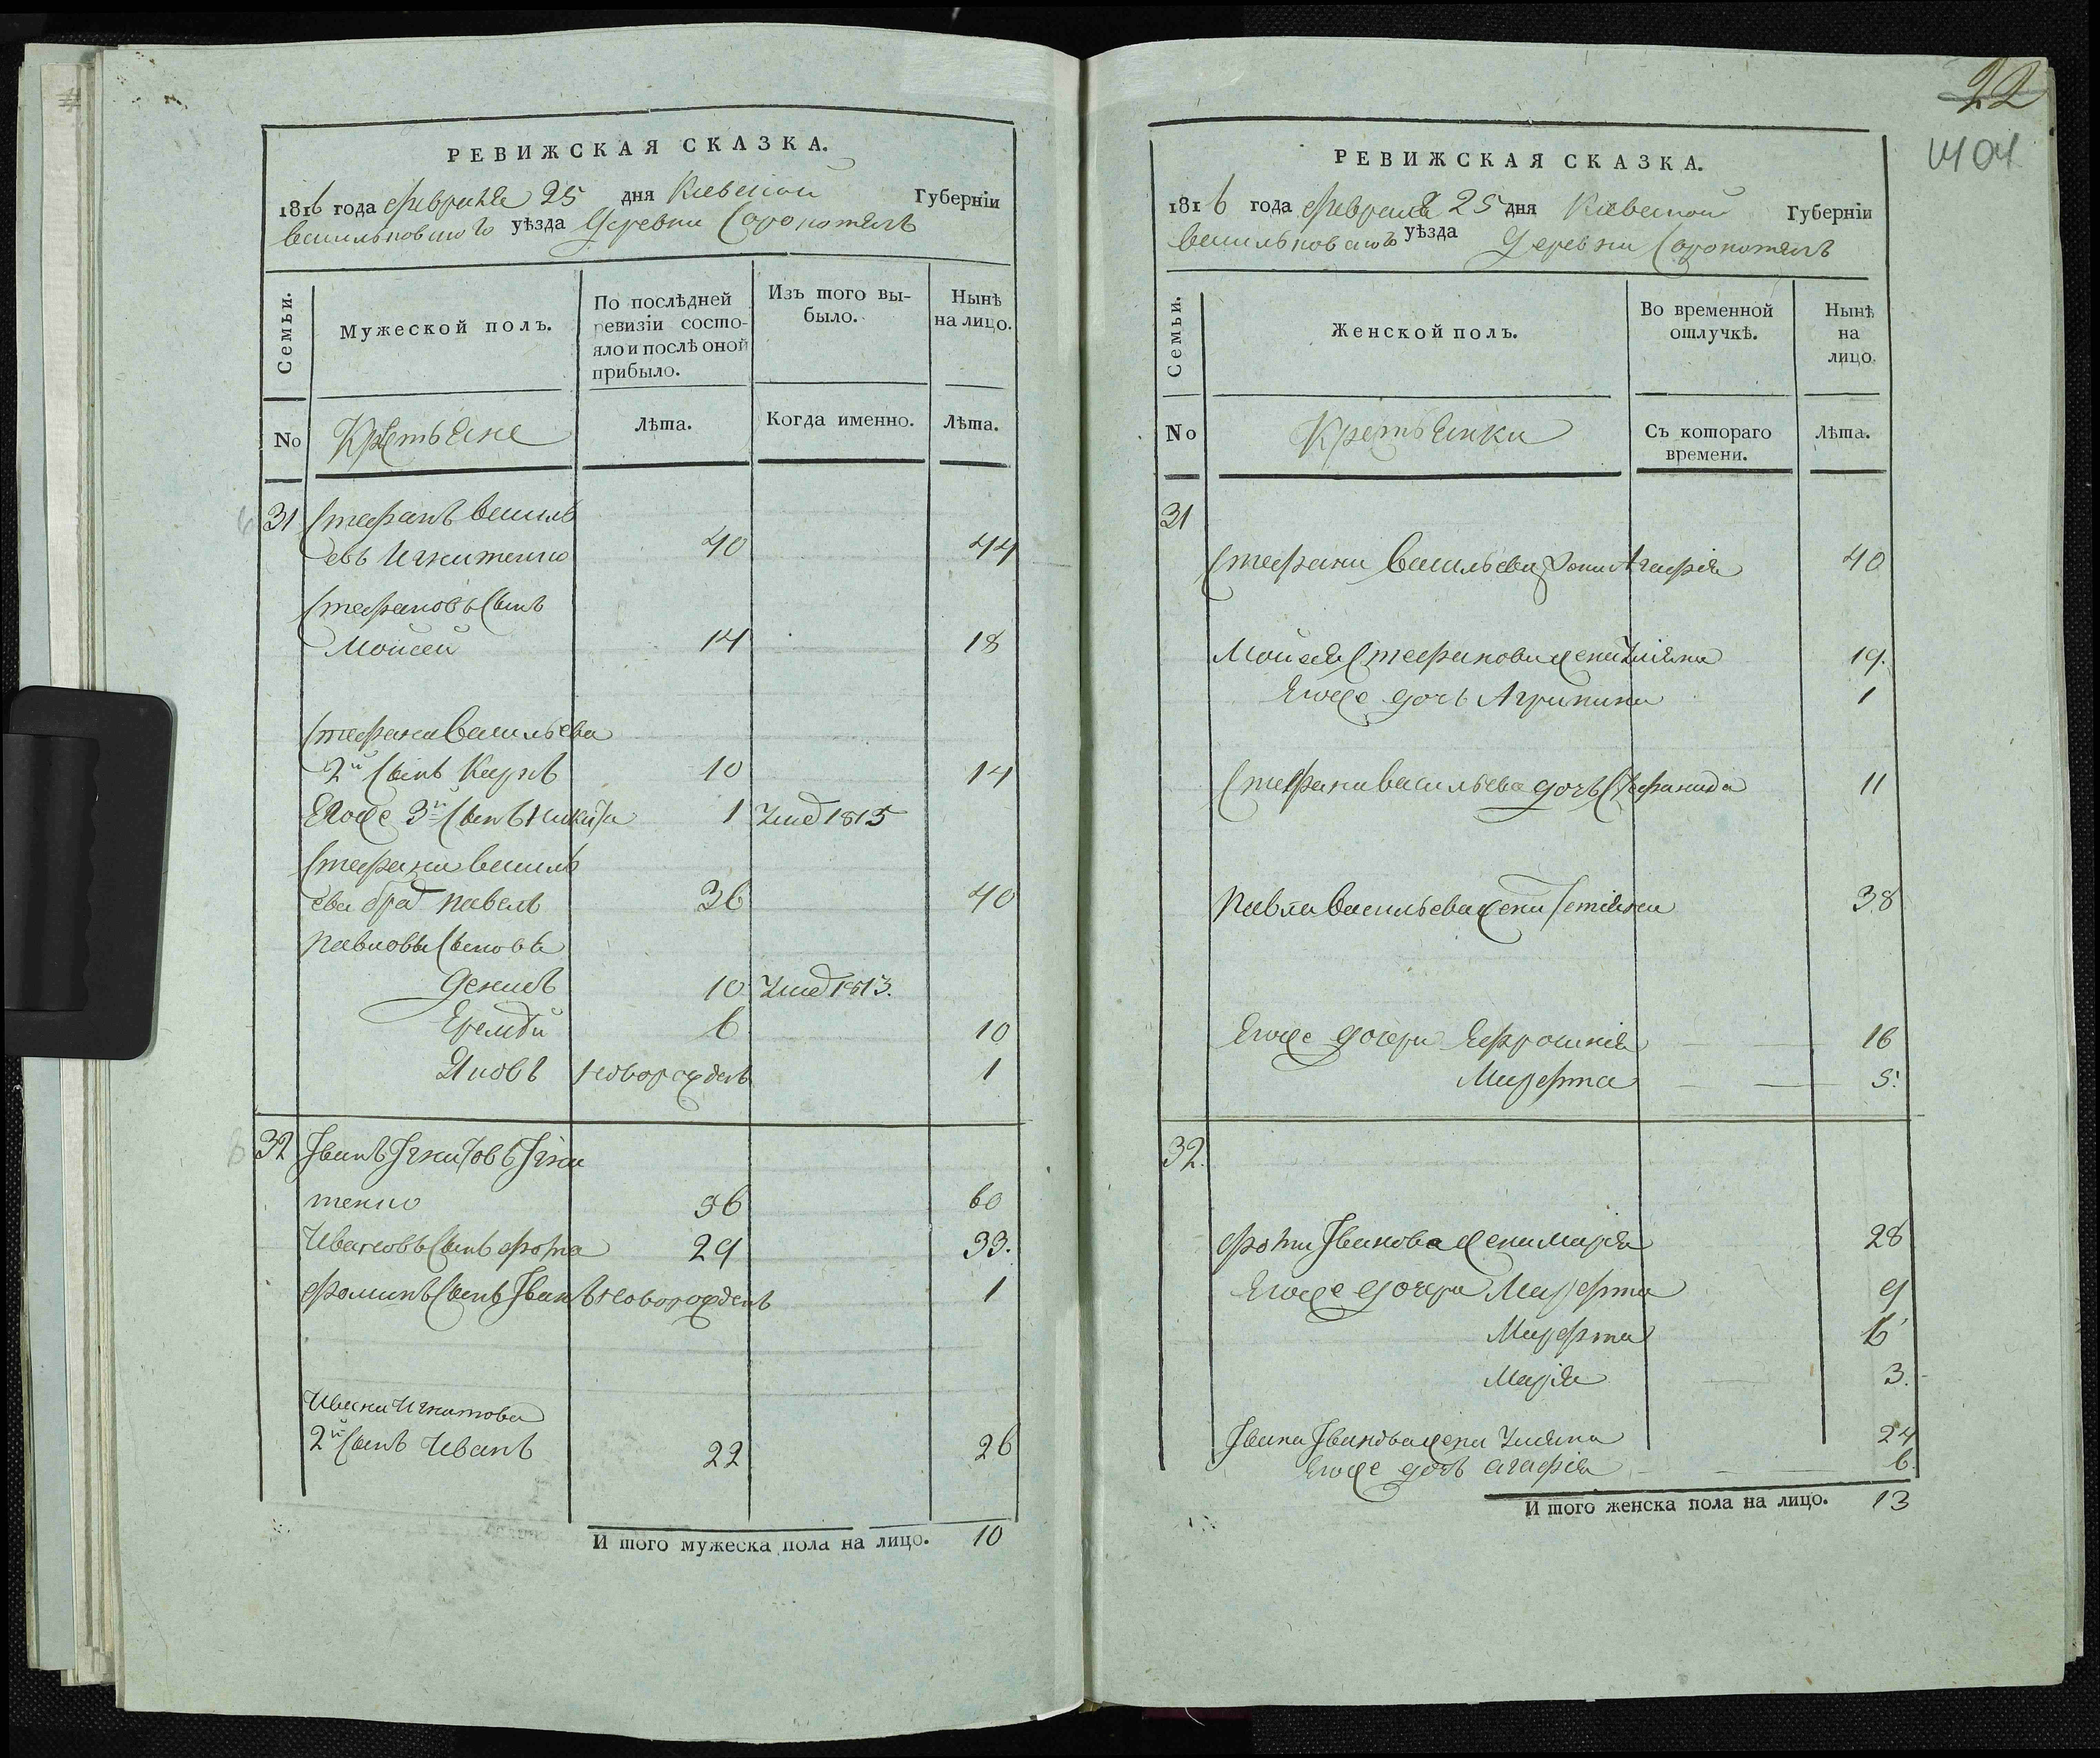 РЕВИЖСКАЯ СКАЗКА.
1816 года февраля 25 дня Киевской Губерніи
васильковского уѣзда Деревни Сорокотягъ
Семьи.
Мужеской полъ.
По послѣдней
ревизіи состо-
яло и послѣ оной
прибыло.
Изъ того вы-
было.
Нынѣ
на лицо.
No
Крестьяне
Лѣта.
Когда именно.
Лѣта.
31 Стефанъ василь
евъ Игнатенко 40 44
Стефановъ Сынъ
Мойсей 14 18
Стефана васильева
2й Сынъ Карпъ 10 14
Егоже 3й Сынъ Никита 1 Умер 1815
Стефана василь
ева брат Павелъ 36 40
Павловы Сыновья
Денисъ 10 Умер 1813.
Еремѣй 6 10
Яковъ новорожденъ 1
32 Іванъ Ігнатовъ Ігна
тенко 56 60
Ивановъ Сынъ фома 29 33.
фоминъ Сынъ Іванъ новорожденъ 1
Ивана Игнатова
2й Сынъ Иванъ 22 26
И того мужеска пола на лицо. 10
22
РЕВИЖСКАЯ СКАЗКА.
1816 года февраля 25 дня Киевской Губерніи
васильковского уѣзда Деревни Сорокотягъ
Семьи.
Женской полъ.
Во временной
отлучкѣ.
Нынѣ
на
лицо.
No
Крестьянки
Съ котораго
времени.
Лѣта.
31
Стефана васильева жена Агафія 40
Мойсея Стефанова жена Уліяна 19.
Егоже дочь Агрипина 1
Стефана васильева дочь Стефанида 11
Павла васильева жена Тетіяна 38
Егоже дочери Ефросинія 16
Марфта 5.
32.
фоми Іванова жена Марія 28
Егоже дочери Марфта 9
Марфта 6
Марія 3.
Івана Іванова жена Уліяна 24
Егоже дочь агафія 6.
И того женска пола на лицо. 13